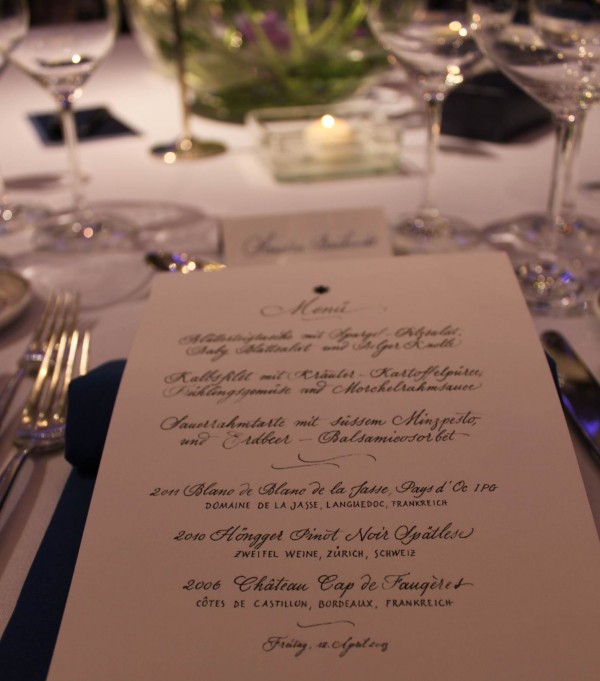 Menü
Blätterteigtasche mit Spargel-Pilzsalat,
Baby Blattsalat und Belper Knolle
Kalbsfilet mit Kräuter-Kartoffelpüree,
Frühlingsgemüse und Morchelrahmsauce
Sauerrahmtarte mit süssem Minzpesto,
und Erdbeer-Balsamicosorbet
2011 Blanc de Blanc de la Jasse, Pays d'Oc IPG
DOMAINE DE LA JASSE, LANGUEDOC, FRANKREICH
2010 Höngger Pinot Noir Spätlese
ZWEIFEL WEINE, ZÜRICH, SCHWEIZ
2006 Château Cap de Faugères
CÔTES DE CASTILLON, BORDEAUX, FRANKREICH
Freitag, 12. April 2013